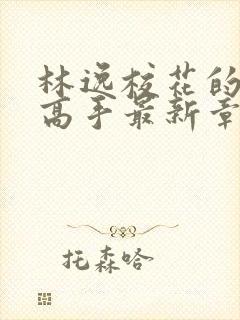 林逸校花的
高手最新章
托森哈